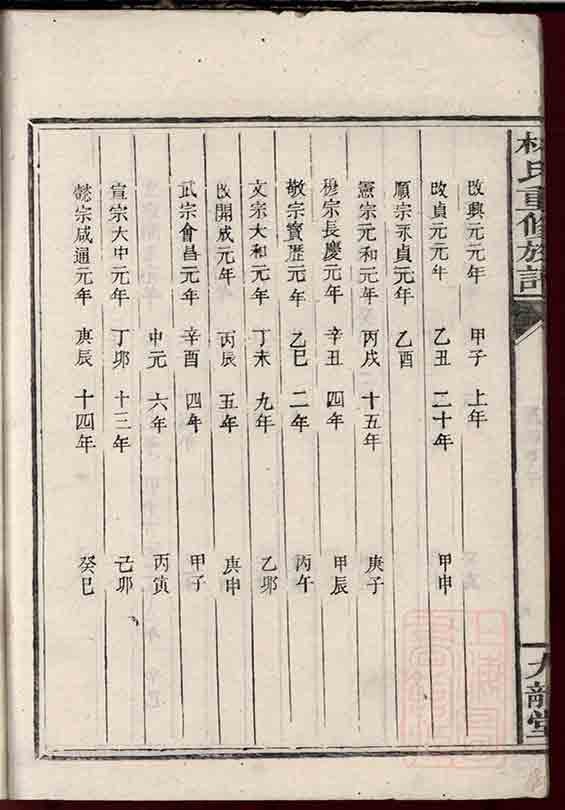 林氏重修族譜
改興元元年 甲子 上年
改貞元元年 乙丑 二十年 甲申
順宗永貞元年 乙酉
憲宗元和元年 丙戌 十五年 庚子
穆宗長慶元年 辛丑 四年 甲辰
敬宗寶歷元年 乙巳 二年 丙午
文宗大和元年 丁未 九年 乙卯
改開成元年 丙辰 五年 庚申
武宗會昌元年 辛酉 四年 甲子
中元 六年 丙寅
宣宗大中元年 丁卯 十三年 己卯
懿宗咸通元年 庚辰 十四年 癸巳
九龍堂